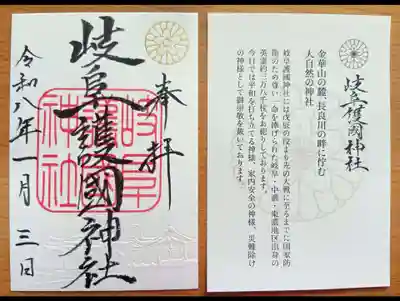 奉拝
岐阜護國神社
岐阜護國神社
令和八年一月三日
金華山の麓・長良川の畔に佇む
大自然の神社
岐阜護國神社
岐阜護國神社には戊辰の役より先の大戦に至るまでに国家防
衛のため尊い一命を捧げられた岐阜・中濃・東濃地区出身の
英霊約三万八千柱をお祀りしております。
今日では平和を打ち立てる神様、家内安全の神様、災難除け
の神様として御崇敬を戴いております。